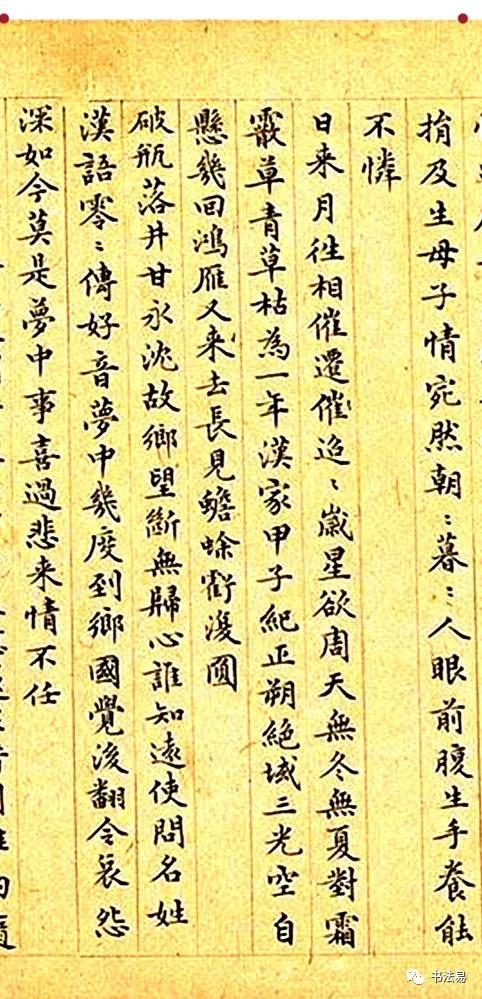 捐及生母子情宛然朝〻暮〻人眼前腹生手養能
不憐
日来月徃相催遷催迢〻歲星欲周天無冬無夏對霜
霰草青草枯為一年漢家甲子紀正朔絶域三光空自
懸幾回鴻雁又来去長見蟾蜍虧復圓
破瓶落井甘永沈故鄉望斷無歸心誰知遠使問名姓
漢語零〻傳好音夢中幾度到鄉國覺後翻令哀怨
深如今莫是夢中事喜過悲来情不任
书法易